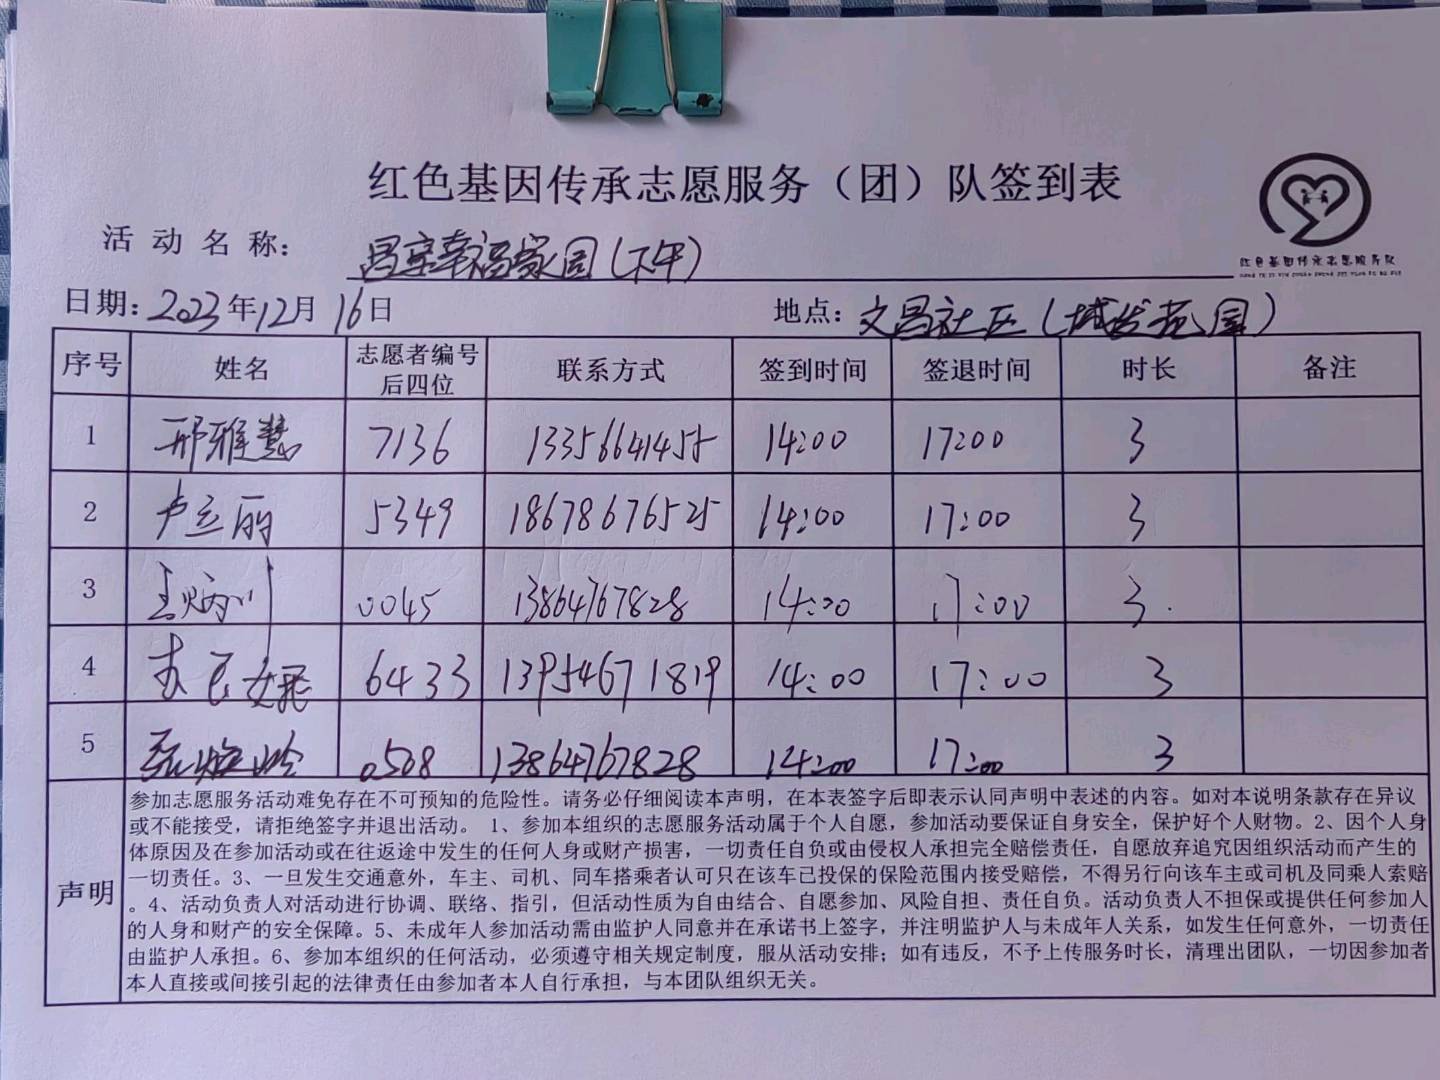 红色基因传承志愿服务（团）队签到表
红色基因传承志愿服务队
活动名称： 昌宁幸福家园（下午）
日期：2023年12月16日 地点：文昌社区（城发花园）
序号 姓名 志愿者编号后四位 联系方式 签到时间 签退时间 时长 备注
1 邢雅慧 7136 13356641455 14:00 17:00 3
2 卢立丽 5349 18678676525 14:00 17:00 3
3 王炳川 0045 13864767828 14:00 17:00 3
4 6433 13954671819 14:00 17:00 3
5 0508 13864767828 14:00 17:00 3
声明
参加志愿服务活动难免存在不可预知的危险性。请务必仔细阅读本声明，在本表签字后即表示认同声明中表述的内容。如对本说明条款存在异议
或不能接受，请拒绝签字并退出活动。 1、参加本组织的志愿服务活动属于个人自愿，参加活动要保证自身安全，保护好个人财物。2、因个人身
体原因及在参加活动或在往返途中发生的任何人身或财产损害，一切责任自负或由侵权人承担完全赔偿责任，自愿放弃追究因组织活动而产生的
一切责任。3、一旦发生交通意外，车主、司机、同车搭乘者认可只在该车已投保的保险范围内接受赔偿，不得另行向该车主或司机及同乘人索赔
。4、活动负责人对活动进行协调、联络、指引，但活动性质为自由结合、自愿参加、风险自担、责任自负。活动负责人不担保或提供任何参加人
的人身和财产的安全保障。5、未成年人参加活动需由监护人同意并在承诺书上签字，并注明监护人与未成年人关系，如发生任何意外，一切责任
由监护人承担。6、参加本组织的任何活动，必须遵守相关规定制度，服从活动安排；如有违反，不予上传服务时长，清理出团队，一切因参加者
本人直接或间接引起的法律责任由参加者本人自行承担，与本团队组织无关。